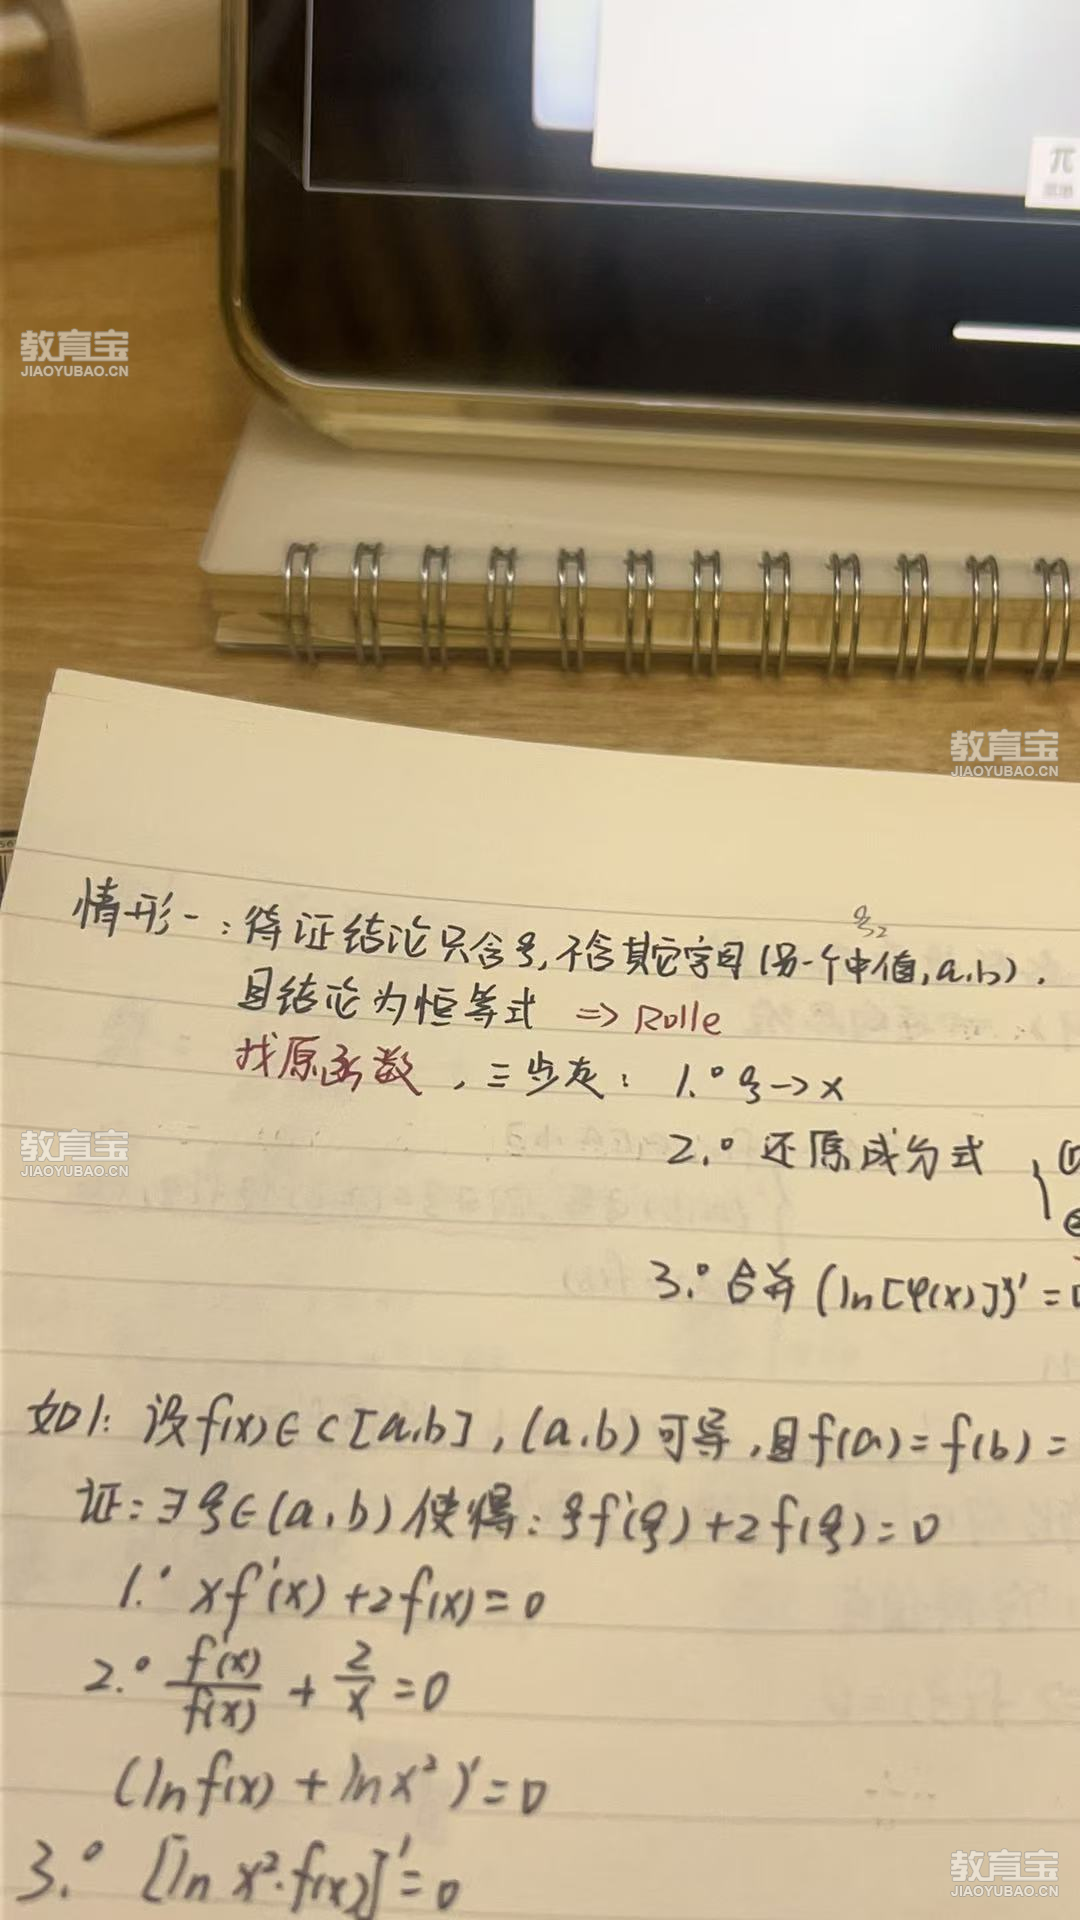 π
教育宝
JIAOYUBAO.CN
教育宝
JIAOYUBAO.CN
情形一:待证结论只含ξ,不含其它字母(另一个中值,a,b).
ξ₂
且结论为恒等式 => Rolle
找原函数,三步走: 1.° ξ->x
教育宝
JIAOYUBAO.CN
2.° 还原成分式
3.° 合并 {ln[φ(x)]}' =
如1: 设f(x)∈C[a,b],(a,b)可导,且f(a)=f(b)=
证:∃ξ∈(a,b)使得:ξf'(ξ)+2f(ξ)=0
1.° xf'(x)+2f(x)=0
2.° f'(x)/f(x) + 2/x =0
(lnf(x)+lnx²)'=0
3.° [ln x²·f(x)]'=0
教育宝
JIAOYUBAO.CN